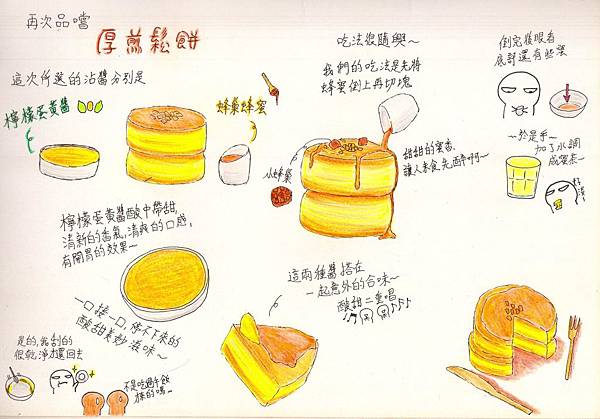 再次品嚐
厚煎鬆餅
這次所選的沾醬分別是
檸檬蛋黃醬
蜂巢蜂蜜
吃法很隨興~
我們的吃法是先將
蜂蜜倒上再切塊
小蜂巢
甜甜的蜜香,
讓人未食先醉呵~
倒完後眼看
底部還有些蜜
~於是乎~
加了水調
成蜜茶~
檸檬蛋黃醬酸中帶甜,
清新的香氣,清爽的口感,
有開胃的效果~
一口接一口,停不下來的
酸甜美妙滋味~
這兩種醬搭在
一起意外的合味~
酸甜二重唱
是的,我刮的
很乾淨才還回去
不是吃過午飯
來的嗎~